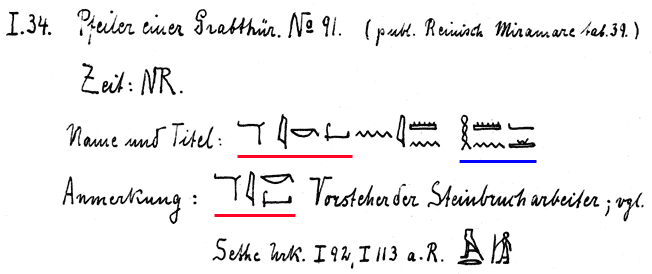 I.34. Pfeiler einer Grabthür. No 91. (publ. Reinisch Miramare tab. 39.)
Zeit: NR.
Name und Titel:
Anmerkung: Vorsteher der Steinbrucharbeiter; vgl.
Sethe Urk. I 92, I 113 a. R.